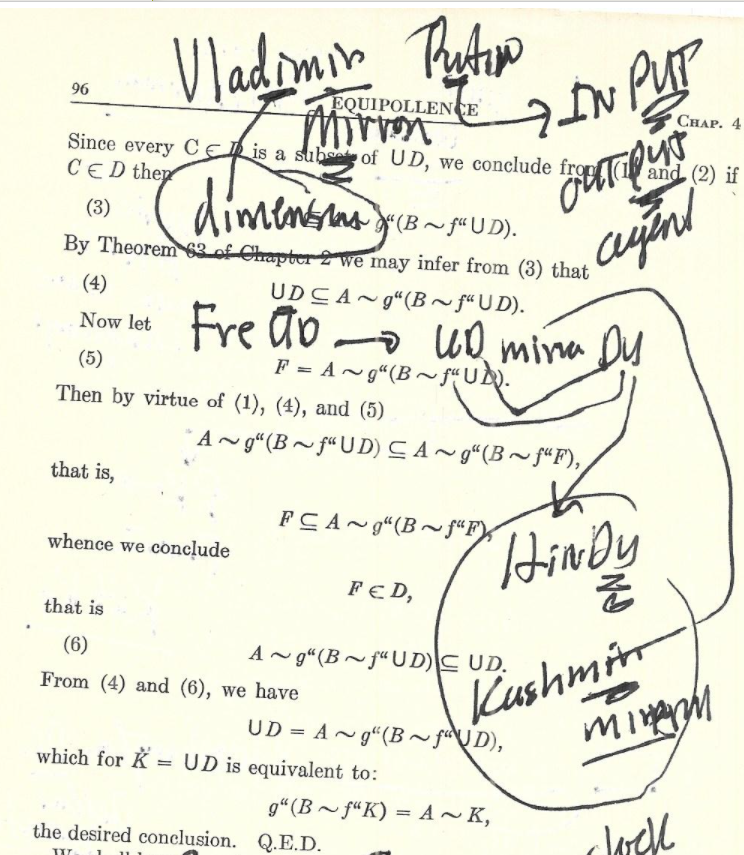 Vladimir Putin
96
EQUIPOLLENCE
IN PUT
CHAP. 4
Mirror
Since every C ∈ D is a subset of ∪D, we conclude from (1) and (2) if
C ∈ D then
OUTPUT
(3) g“(B ∼ f“∪D).
dimensions
agent
By Theorem 63 of Chapter 2 we may infer from (3) that
(4) ∪D ⊆ A ∼ g“(B ∼ f“∪D).
Now let
(5) F = A ∼ g“(B ∼ f“∪D).
Then by virtue of (1), (4), and (5)
A ∼ g“(B ∼ f“∪D) ⊆ A ∼ g“(B ∼ f“F),
that is,
F ⊆ A ∼ g“(B ∼ f“F),
HinDy
whence we conclude
F ∈ D,
that is
(6) A ∼ g“(B ∼ f“∪D) ⊆ ∪D.
Kashmir
From (4) and (6), we have
∪D = A ∼ g“(B ∼ f“∪D),
which for K = ∪D is equivalent to:
g“(B ∼ f“K) = A ∼ K,
the desired conclusion. Q.E.D.
clock